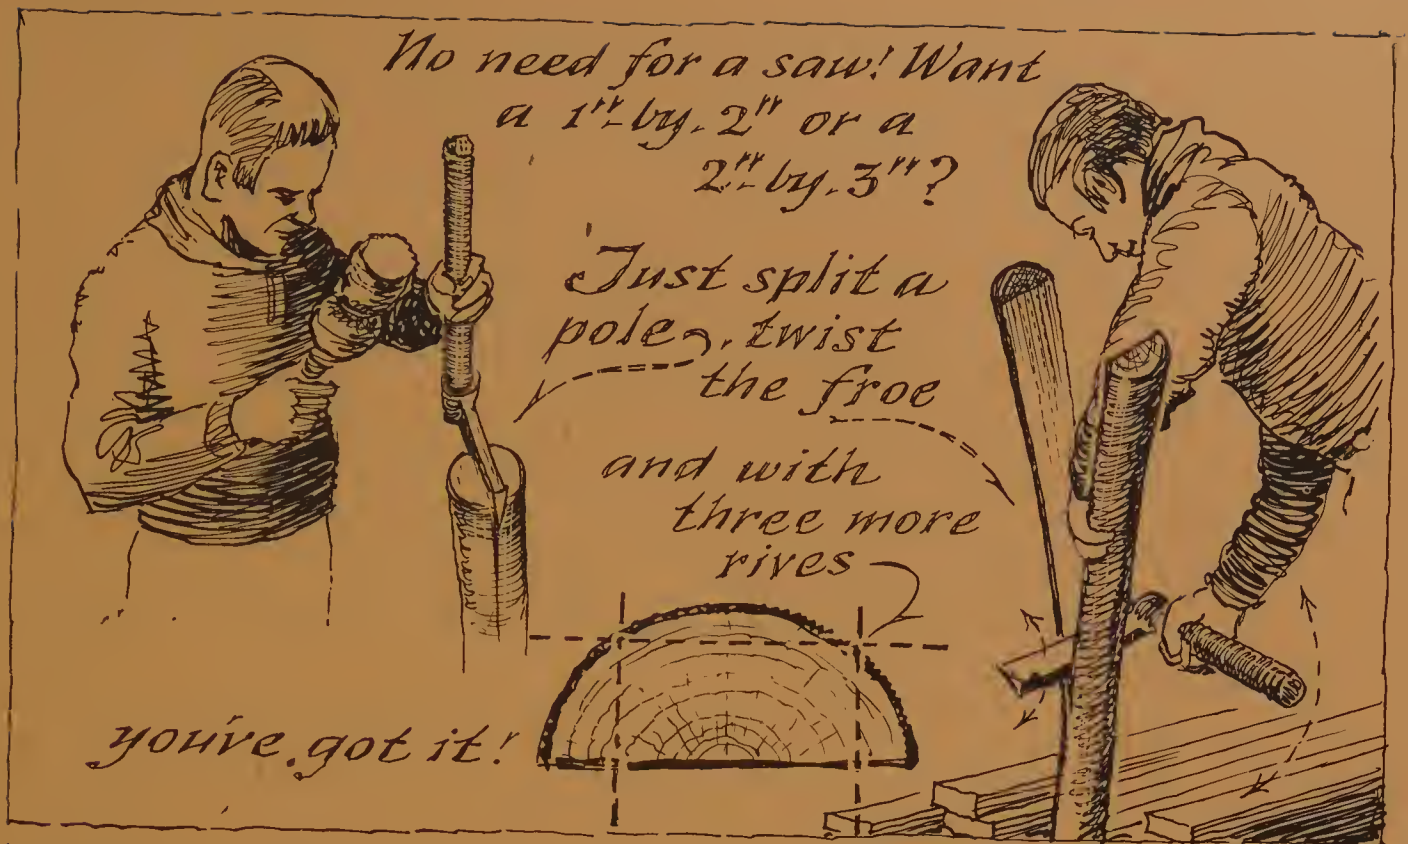 No need for a saw! Want
a 1"-by-2" or a
2"-by-3"?
Just split a
pole, twist
the froe
and with
three more
rives
you've got it!